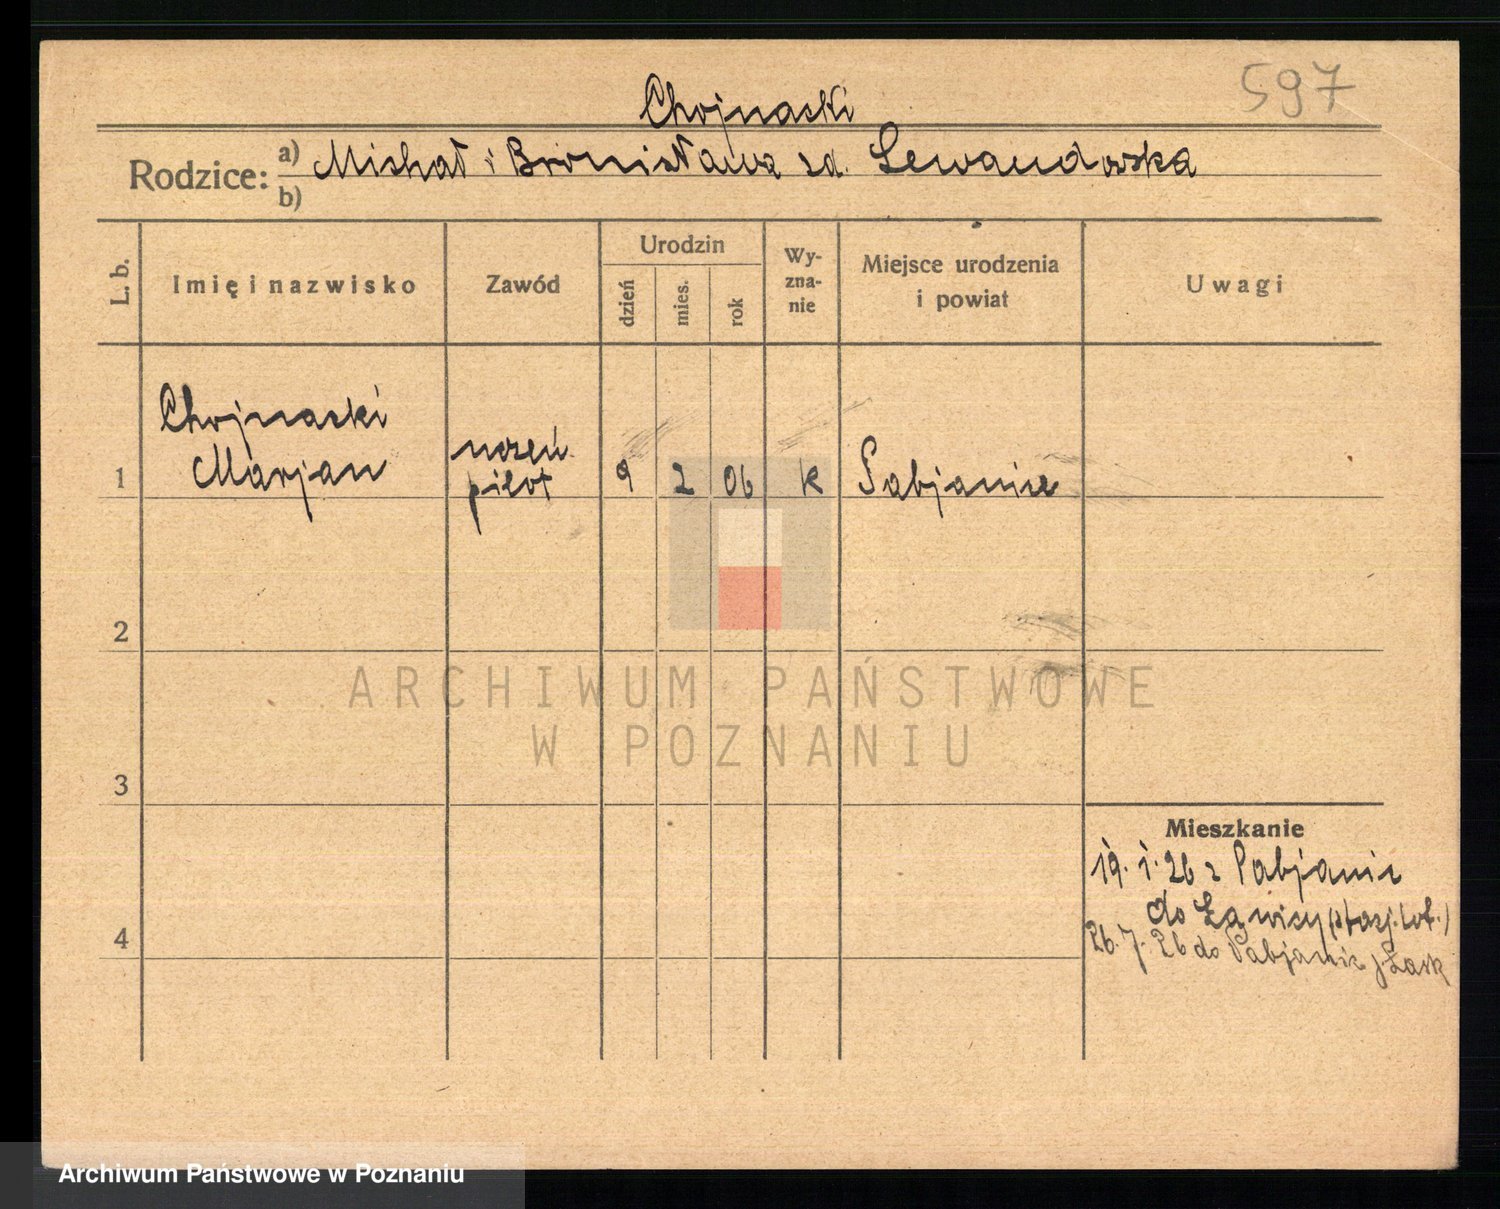 597
Chojnacki
Rodzice: a) Michał i Bronisława zd. Lewandowska
b)
L. b.
Imię i nazwisko
Zawód
Urodzin
dzień
mies.
rok
Wy-
zna-
nie
Miejsce urodzenia
i powiat
Uwagi
Chojnacki
Marjan
1
uczeń
pilot
9
2
06
k
Pabjanice
2
ARCHIWUM PAŃSTWOWE
W POZNANIU
3
Mieszkanie
19. 1. 26 z Pabjanic
do Ławicy (stacj. lot.)
4
26. 7. 26 do Pabjanic, Łask
Archiwum Państwowe w Poznaniu